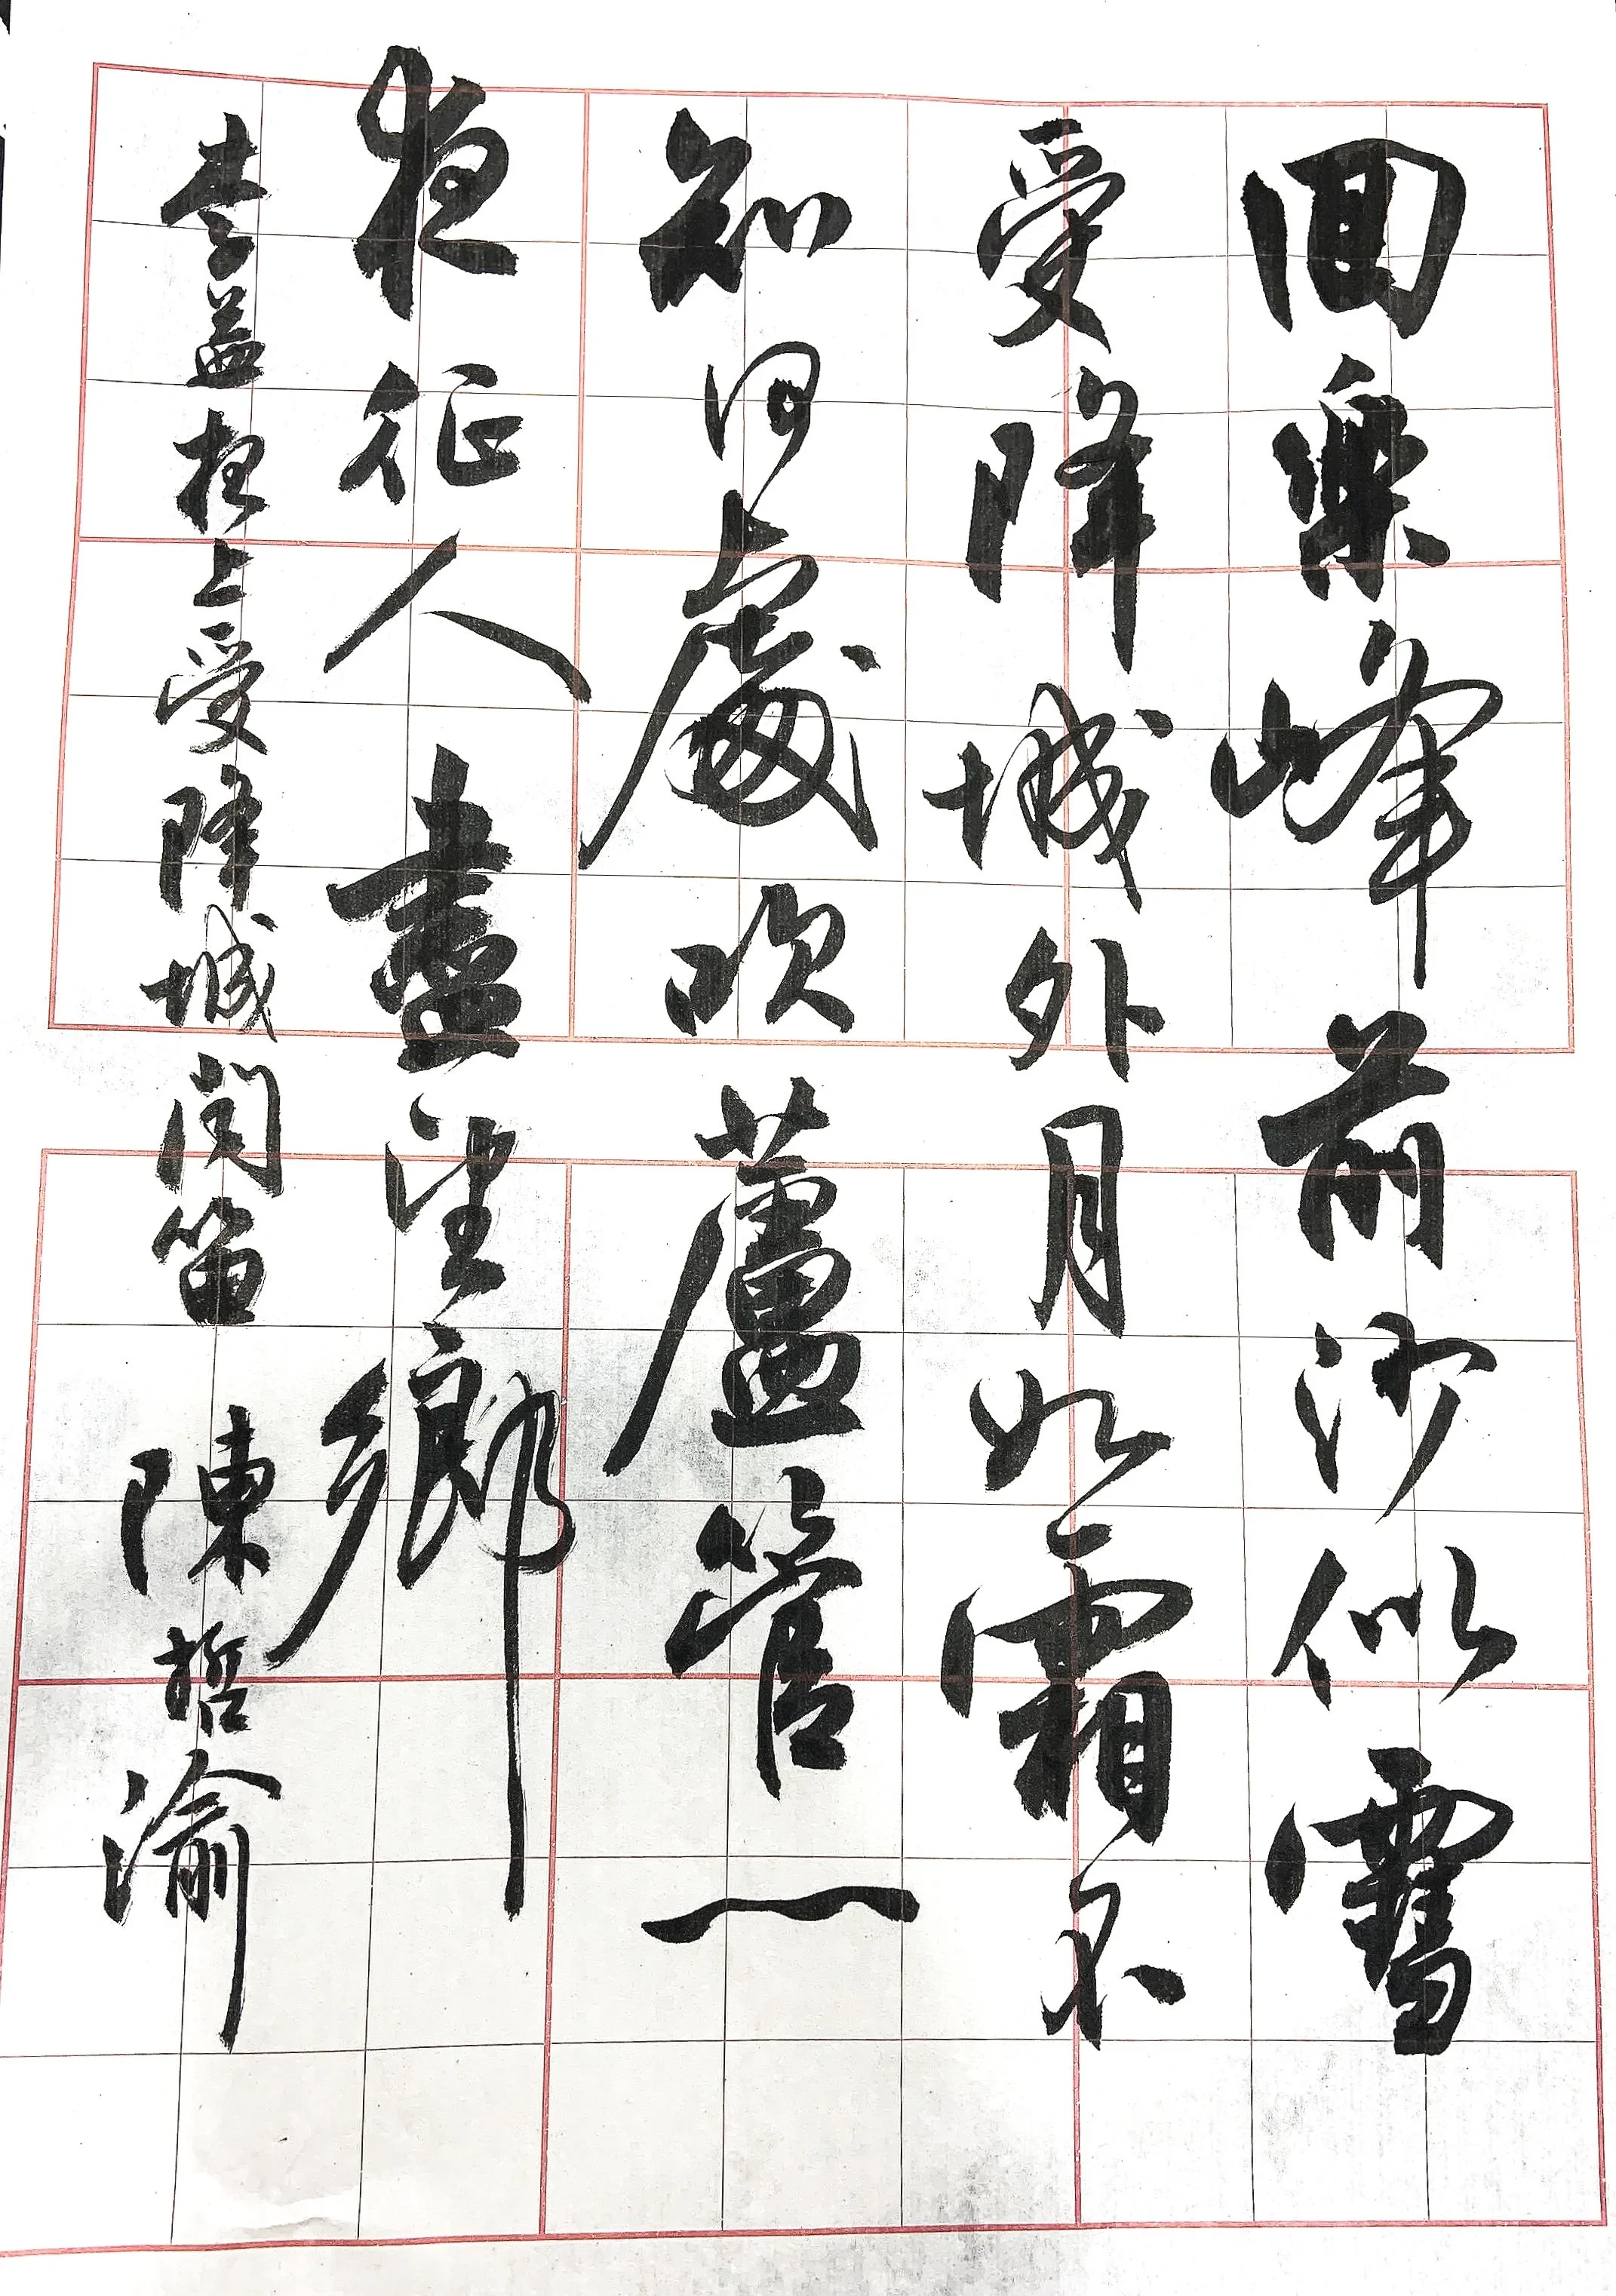 回樂峰前沙似雪
受降城外月如霜不
知何處吹蘆管一
夜征人盡望鄉
李益夜上受降城聞笛 陳哲渝